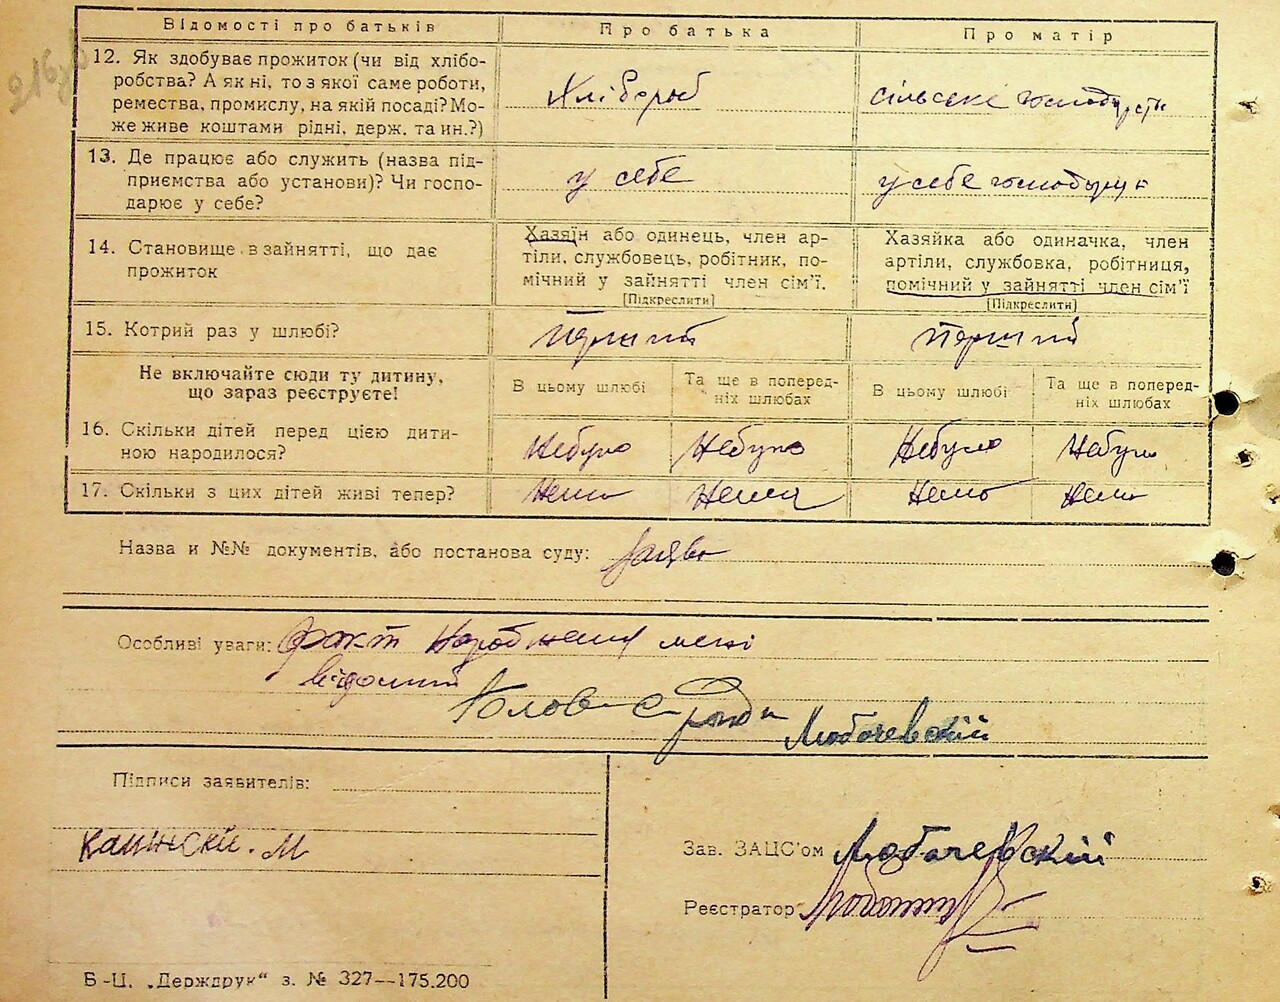 Відомості про батьків Про батька Про матір
12. Як здобуває прожиток (чи від хлібо-
робства? А як ні, то з якої саме роботи,
ремества, промислу, на якій посаді? Мо-
же живе коштами рідні, держ. та ин.?)
Хлібороб
сільське
13. Де працює або служить (назва під-
приємства або установи)? Чи госпо-
дарює у себе?
у себе
у себе
14. Становище в зайнятті, що дає
прожиток
Хазяїн або одинець, член ар-
тіли, службовець, робітник, по-
мічний у зайнятті член сім'ї.
[Підкреслити]
Хазяйка або одиначка, член
артіли, службовка, робітниця,
помічний у зайнятті член сім'ї
[Підкреслити]
15. Котрий раз у шлюбі?
Перший
Перший
Не включайте сюди ту дитину,
що зараз реєструєте!
В цьому шлюбі
Та ще в поперед-
ніх шлюбах
В цьому шлюбі
Та ще в поперед-
ніх шлюбах
16. Скільки дітей перед цією дити-
ною народилося?
Небуло Небуло Небуло Небуло
17. Скільки з цих дітей живі тепер?
Нема Нема Нема Нема
Назва и №№ документів, або постанова суду: заява
Особливі уваги: Факт народження мені
відомий
Голова с ради Любачевский
Підписи заявителів:
М
Зав. ЗАЦС'ом Любачевский
Реєстратор
Б-Ц. „Держдрук“ з. № 327—175.200